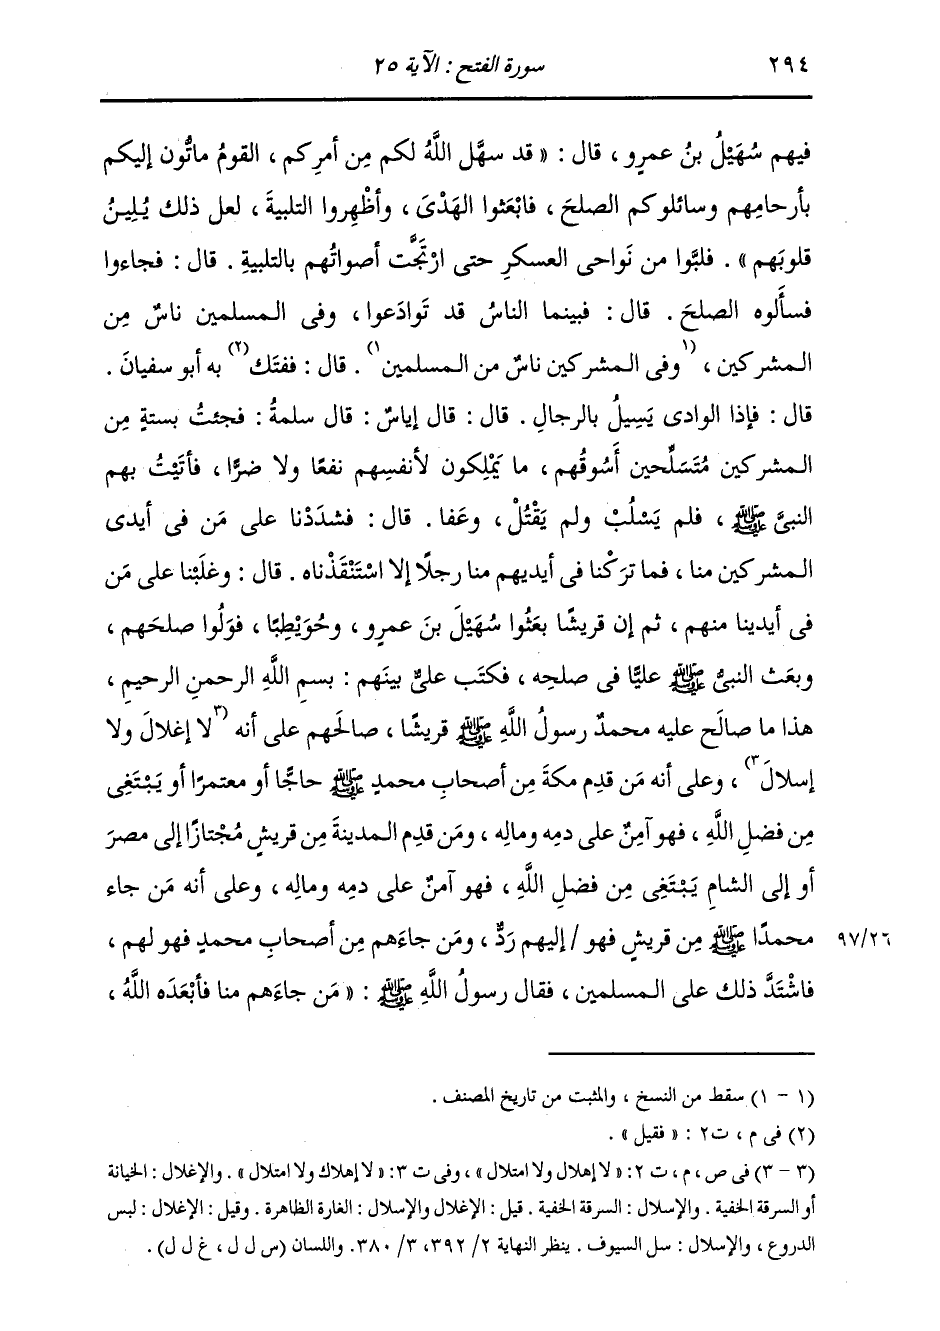 ٢٩٤
سورة الفتح : الآية ٢٥
فيهم سُهَيْلُ بنُ عمرٍو ، قال : « قد سهَّل اللَّهُ لكم مِن أمرِكم ، القومُ ماتُّون إليكم
بأرحامِهم وسائلوكم الصلحَ ، فابْعَثوا الهَدْىَ ، وأظْهِروا التلبيةَ ، لعل ذلك يُلِينُ
قلوبَهم » . فلبَّوا من نَواحى العسكرِ حتى ارْتَجَّت أصواتُهم بالتلبيةِ . قال : فجاءوا
فسأَلوه الصلحَ . قال : فبينما الناسُ قد تَوادَعوا ، وفى المسلمين ناسٌ مِن
المشركين ، (١وفى المشركين ناسٌ من المسلمين١) . قال : ففتَك(٢) به أبو سفيانَ .
قال : فإذا الوادى يَسِيلُ بالرجالِ . قال : قال إياسٌ : قال سلمةُ : فجئتُ بستةٍ مِن
المشركين مُتَسَلِّحين أَسُوقُهم ، ما يَمْلِكون لأنفسِهم نفعًا ولا ضرًّا ، فأتَيْتُ بهم
النبىَّ ﷺ ، فلم يَسْلُبْ ولم يَقْتُلْ ، وعَفا . قال : فشدَدْنا على مَن فى أيدى
المشركين منا ، فما ترَكْنا فى أيديهم منا رجلًا إلا اسْتَنْقَذْناه . قال : وغلَبْنا على مَن
فى أيدينا منهم ، ثم إن قريشًا بعَثُوا سُهَيْلَ بنَ عمرٍو ، وحُوَيْطِبًا ، فوَلُوا صلحَهم ،
وبعَث النبىُّ ﷺ عليًّا فى صلحِه ، فكتَب علىٌّ بينَهم : بسمِ اللَّهِ الرحمنِ الرحيمِ ،
هذا ما صالَح عليه محمدٌ رسولُ اللَّهِ ﷺ قريشًا ، صالَحهم على أنه (٣لا إغلالَ ولا
إسلالَ٣) ، وعلى أنه مَن قدِم مكةَ مِن أصحابِ محمدٍ ﷺ حاجًّا أو معتمرًا أو يَبْتَغِى
مِن فضلِ اللَّهِ ، فهو آمِنٌ على دمِه ومالِه ، ومَن قدِم المدينةَ مِن قريشٍ مُجْتازًا إلى مصرَ
أو إلى الشامِ يَبْتَغِى مِن فضلِ اللَّهِ ، فهو آمنٌ على دمِه ومالِه ، وعلى أنه مَن جاء
محمدًا ﷺ مِن قريشٍ فهو / إليهم رَدٌّ ، ومَن جاءَهم مِن أصحابِ محمدٍ فهو لهم ،
٩٧/٢٦
فاشْتَدَّ ذلك على المسلمين ، فقال رسولُ اللَّهِ ﷺ : « مَن جاءَهم منا فأبْعَدَه اللَّهُ ،
(١ - ١) سقط من النسخ ، والمثبت من تاريخ المصنف .
(٢) فى م ، ت٢ : « فقيل » .
(٣ - ٣) فى ص ، م ، ت ٢: « لا إهلال ولا امتلال » ، وفى ت ٣: « لا إهلاك ولا امتلال » . والإغلال : الخيانة
أو السرقة الخفية . والإسلال : السرقة الخفية . قيل : الإغلال والإسلال : الغارة الظاهرة . وقيل : الإغلال : لبس
الدروع ، والإسلال : سل السيوف . ينظر النهاية ٢/ ٣٩٢، ٣/ ٣٨٠. واللسان (س ل ل ، غ ل ل) .